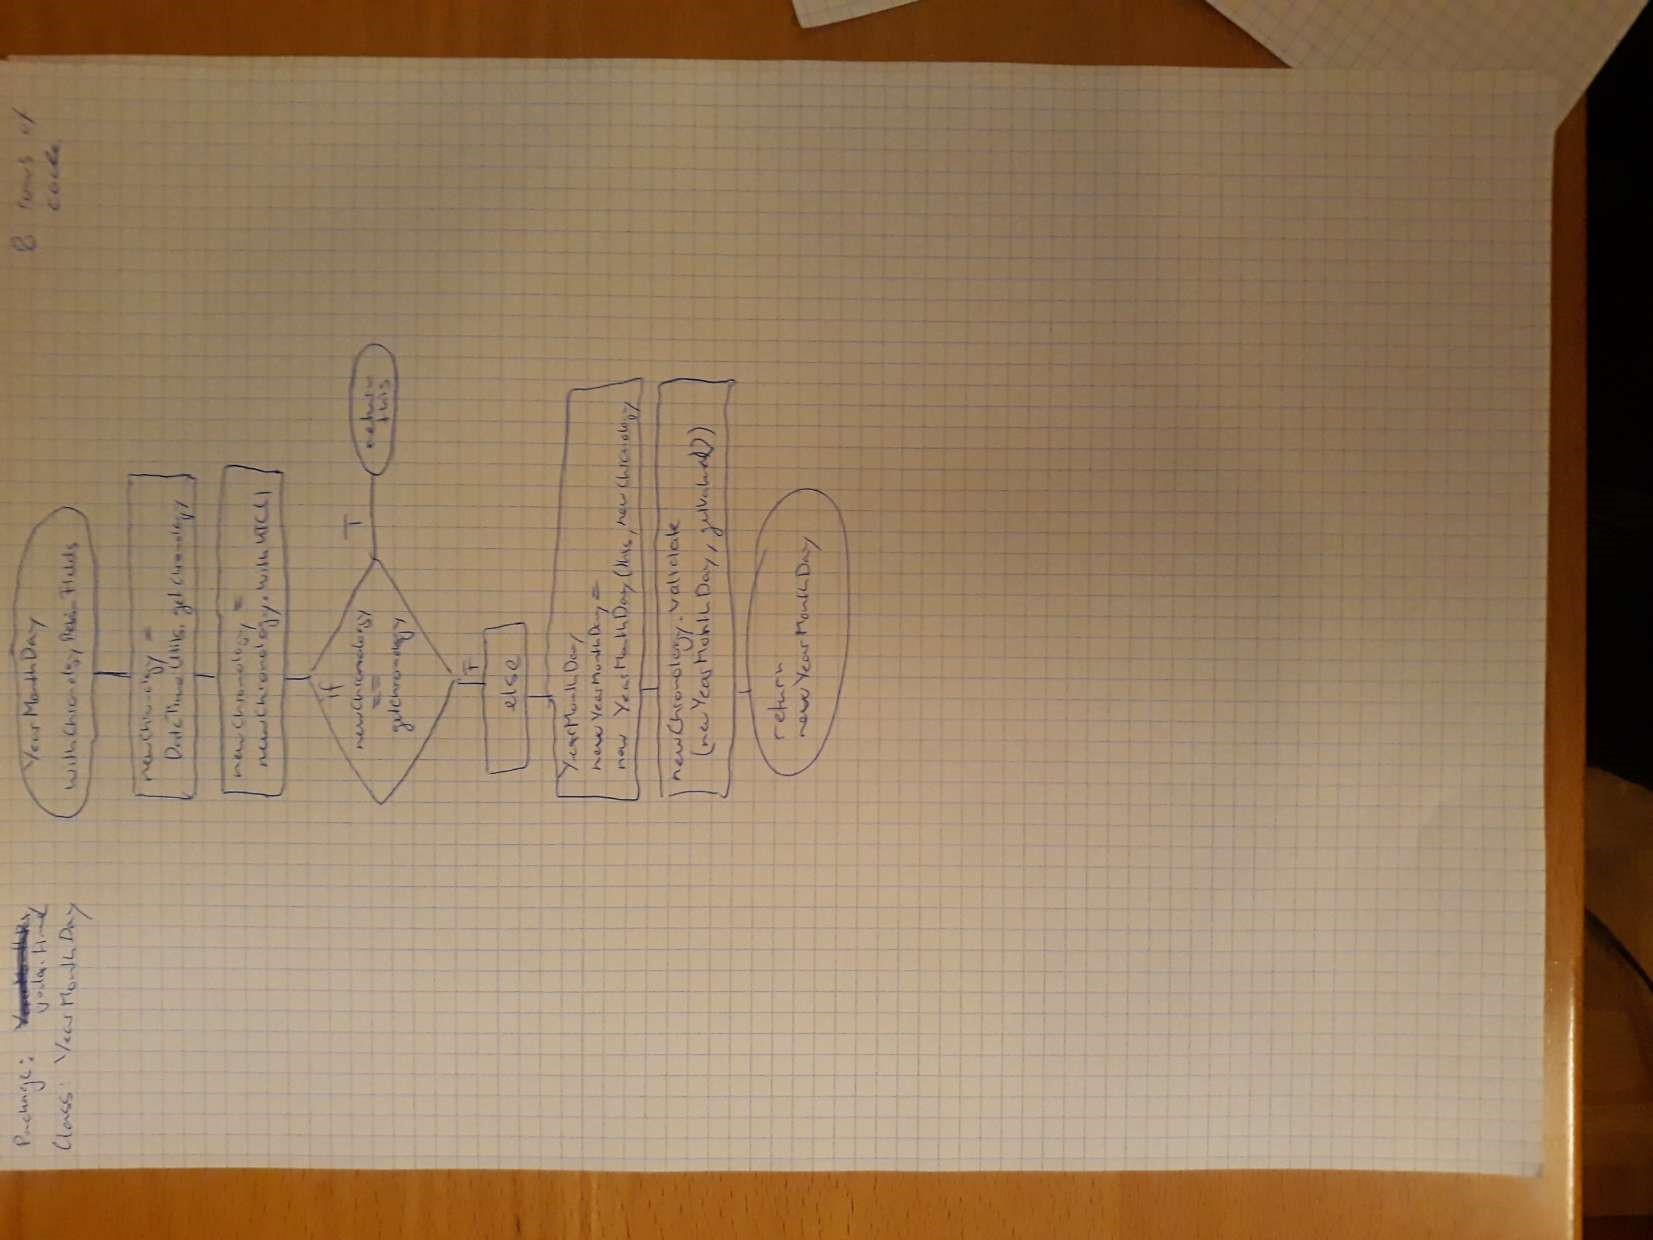 Package:
yoda.time
Class: YearMonthDay
8 rows of
code
YearMonthDay
withChronologyRetainFields
newChronology =
DateTimeUtils.getChronology
newChronology =
newChronology.withUTC()
if
newChronology
==
getChronology
T
return
this
T
else
YearMonthDay
newYearMonthDay =
new YearMonthDay(this, newChronology
newChronology.validate
(newYearMonthDay, getValues())
return
newYearMonthDay